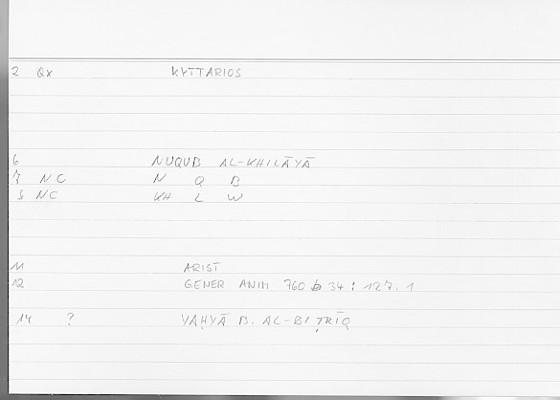 2 Qx KYTTARIOS
6 NUQUB AL-KHILĀYĀ
7 NC N Q B
5 NC KH L W
11 ARIST
12 GENER ANIM 760 b 34 : 127.1
14 ? YAḤYĀ B. AL-BIṬRĪQ